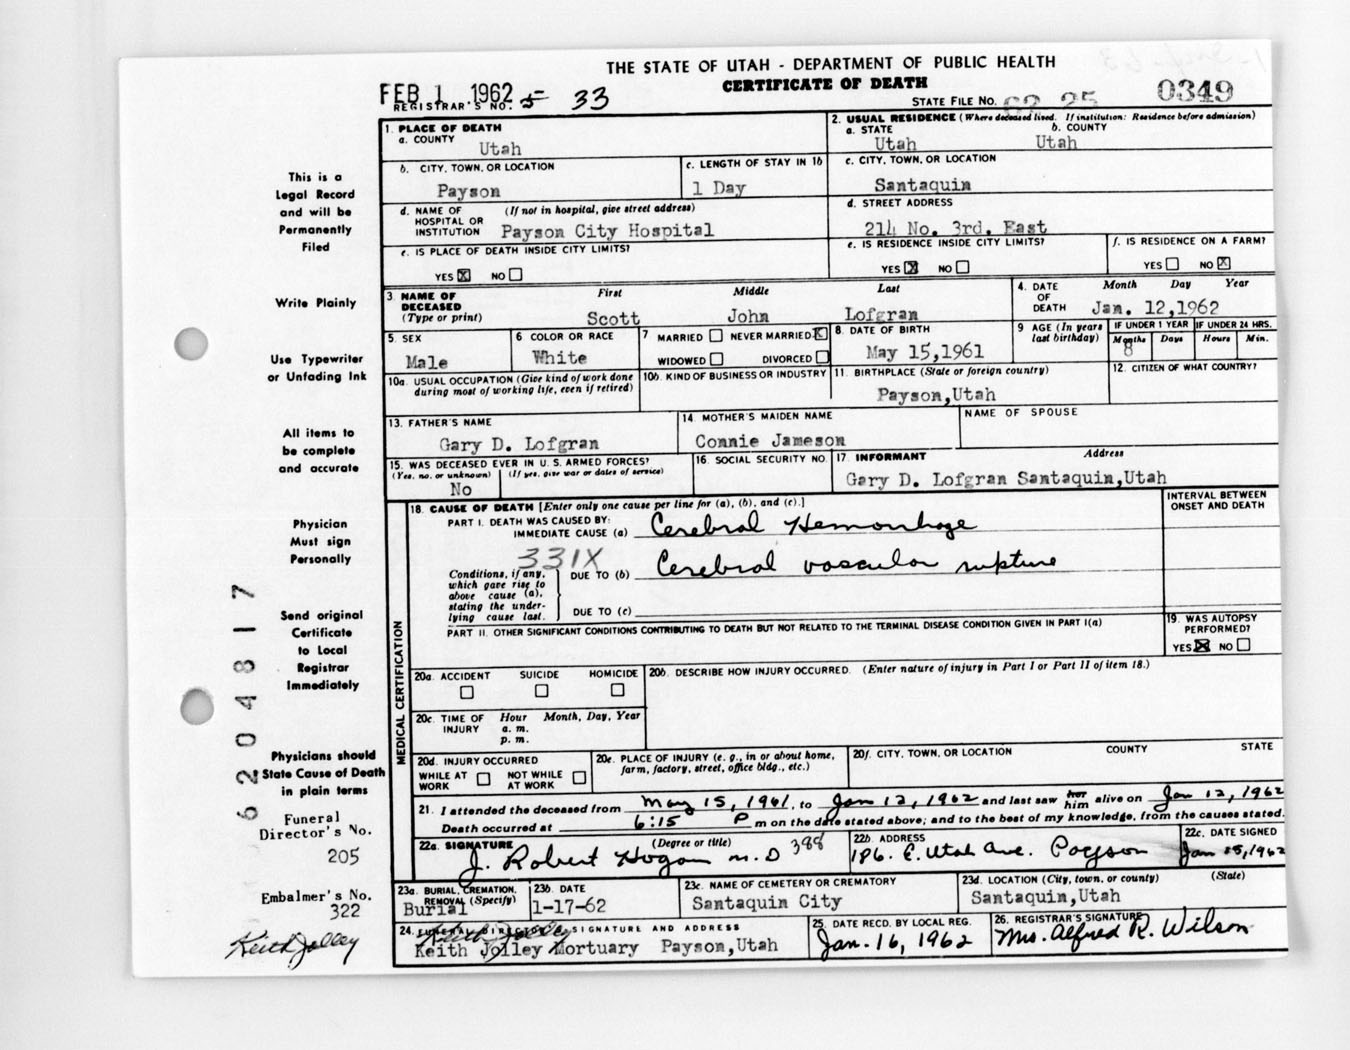 THE STATE OF UTAH - DEPARTMENT OF PUBLIC HEALTH
CERTIFICATE OF DEATH
FEB 1 1962
REGISTRAR'S NO. 5 33
STATE FILE NO. 62 25 0349
1. PLACE OF DEATH
a. COUNTY
Utah
2. USUAL RESIDENCE (Where deceased lived. If institution: Residence before admission)
a. STATE b. COUNTY
Utah Utah
b. CITY, TOWN, OR LOCATION
Payson
c. LENGTH OF STAY IN 1b
1 Day
c. CITY, TOWN, OR LOCATION
Santaquin
d. NAME OF HOSPITAL OR INSTITUTION (If not in hospital, give street address)
Payson City Hospital
d. STREET ADDRESS
214 No. 3rd. East
e. IS PLACE OF DEATH INSIDE CITY LIMITS?
YES X NO
e. IS RESIDENCE INSIDE CITY LIMITS?
YES X NO
f. IS RESIDENCE ON A FARM?
YES NO X
3. NAME OF DECEASED (Type or print)
First Middle Last
Scott John Lofgran
4. DATE OF DEATH Month Day Year
Jan. 12,1962
5. SEX
Male
6 COLOR OR RACE
White
7 MARRIED NEVER MARRIED X
WIDOWED DIVORCED
8. DATE OF BIRTH
May 15,1961
9 AGE (In years last birthday)
IF UNDER 1 YEAR IF UNDER 24 HRS.
Months Days Hours Min.
8
10a. USUAL OCCUPATION (Give kind of work done during most of working life, even if retired)
10b. KIND OF BUSINESS OR INDUSTRY
11. BIRTHPLACE (State or foreign country)
Payson,Utah
12. CITIZEN OF WHAT COUNTRY?
13. FATHER'S NAME
Gary D. Lofgran
14. MOTHER'S MAIDEN NAME
Connie Jameson
NAME OF SPOUSE
15. WAS DECEASED EVER IN U. S. ARMED FORCES?
(Yes, no, or unknown) (If yes, give war or dates of service)
No
16. SOCIAL SECURITY NO.
17. INFORMANT Address
Gary D. Lofgran Santaquin,Utah
18. CAUSE OF DEATH [Enter only one cause per line for (a), (b), and (c).]
INTERVAL BETWEEN ONSET AND DEATH
PART I. DEATH WAS CAUSED BY:
IMMEDIATE CAUSE (a) Cerebral Hemorrhage
331X
Conditions, if any, which gave rise to above cause (a), stating the underlying cause last.
DUE TO (b) Cerebral vascular rupture
DUE TO (c)
PART II. OTHER SIGNIFICANT CONDITIONS CONTRIBUTING TO DEATH BUT NOT RELATED TO THE TERMINAL DISEASE CONDITION GIVEN IN PART I(a)
19. WAS AUTOPSY PERFORMED?
YES X NO
MEDICAL CERTIFICATION
20a. ACCIDENT SUICIDE HOMICIDE
20b. DESCRIBE HOW INJURY OCCURRED. (Enter nature of injury in Part I or Part II of item 18.)
20c. TIME OF INJURY Hour Month, Day, Year
a. m.
p. m.
20d. INJURY OCCURRED
WHILE AT WORK NOT WHILE AT WORK
20e. PLACE OF INJURY (e. g., in or about home, farm, factory, street, office bldg., etc.)
20f. CITY, TOWN, OR LOCATION COUNTY STATE
21. I attended the deceased from May 15, 1961, to Jan 12, 1962 and last saw her him alive on Jan 12, 1962
Death occurred at 6:15 P m on the date stated above; and to the best of my knowledge, from the causes stated.
22a. SIGNATURE (Degree or title)
J. Robert Hogan M. D 388
22b. ADDRESS
186. E. Utah Ave. Payson
22c. DATE SIGNED
Jan 15, 1962
23a. BURIAL, CREMATION, REMOVAL (Specify)
Burial
23b. DATE
1-17-62
23c. NAME OF CEMETERY OR CREMATORY
Santaquin City
23d. LOCATION (City, town, or county) (State)
Santaquin,Utah
24. FUNERAL DIRECTOR'S SIGNATURE AND ADDRESS
Keith Jolley
Keith Jolley Mortuary Payson,Utah
25. DATE RECD. BY LOCAL REG.
Jan. 16, 1962
26. REGISTRAR'S SIGNATURE
Mrs. Alfred R. Wilson
This is a
Legal Record
and will be
Permanently
Filed
Write Plainly
Use Typewriter
or Unfading Ink
All items to
be complete
and accurate
Physician
Must sign
Personally
Send original
Certificate
to Local
Registrar
Immediately
Physicians should
State Cause of Death
in plain terms
Funeral
Director's No.
205
Embalmer's No.
322
Keith Jolley
6204817